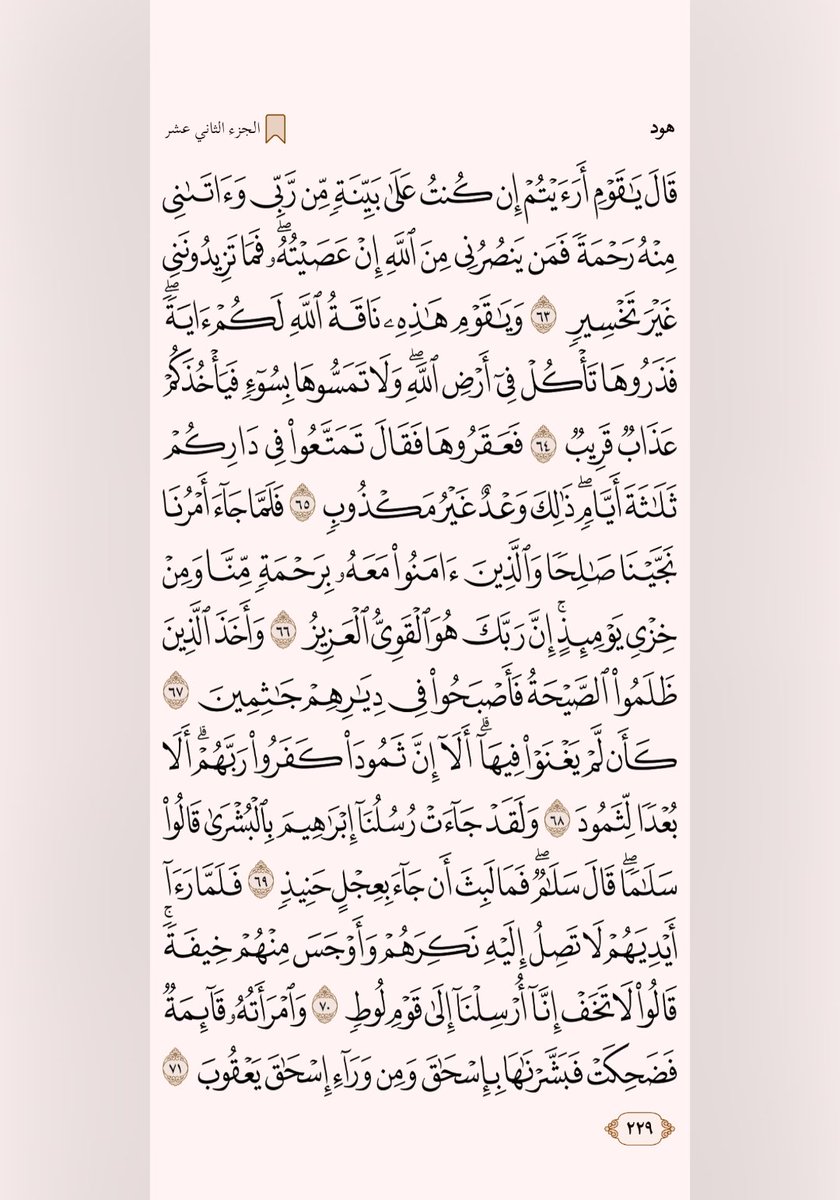 هود
الجزء الثاني عشر
قَالَ يَٰقَوْمِ أَرَءَيْتُمْ إِن كُنتُ عَلَىٰ بَيِّنَةٍ مِّن رَّبِّى وَءَاتَىٰنِى
مِنْهُ رَحْمَةً فَمَن يَنصُرُنِى مِنَ ٱللَّهِ إِنْ عَصَيْتُهُۥۖ فَمَا تَزِيدُونَنِى
غَيْرَ تَخْسِيرٍ ٦٣ وَيَٰقَوْمِ هَٰذِهِۦ نَاقَةُ ٱللَّهِ لَكُمْ ءَايَةًۖ
فَذَرُوهَا تَأْكُلْ فِىٓ أَرْضِ ٱللَّهِۖ وَلَا تَمَسُّوهَا بِسُوٓءٍ فَيَأْخُذَكُمْ
عَذَابٌ قَرِيبٌ ٦٤ فَعَقَرُوهَا فَقَالَ تَمَتَّعُوا۟ فِى دَارِكُمْ
ثَلَٰثَةَ أَيَّامٍۖ ذَٰلِكَ وَعْدٌ غَيْرُ مَكْذُوبٍ ٦٥ فَلَمَّا جَآءَ أَمْرُنَا
نَجَّيْنَا صَٰلِحًا وَٱلَّذِينَ ءَامَنُوا۟ مَعَهُۥ بِرَحْمَةٍ مِّنَّا وَمِنْ
خِزْىِ يَوْمِئِذٍۚ إِنَّ رَبَّكَ هُوَ ٱلْقَوِىُّ ٱلْعَزِيزُ ٦٦ وَأَخَذَ ٱلَّذِينَ
ظَلَمُوا۟ ٱلصَّيْحَةُ فَأَصْبَحُوا۟ فِى دِيَٰرِهِمْ جَٰثِمِينَ ٦٧
كَأَن لَّمْ يَغْنَوْا۟ فِيهَآۗ أَلَآ إِنَّ ثَمُودَا۟ كَفَرُوا۟ رَبَّهُمْۗ أَلَا
بُعْدًا لِّثَمُودَ ٦٨ وَلَقَدْ جَآءَتْ رُسُلُنَآ إِبْرَٰهِيمَ بِٱلْبُشْرَىٰ قَالُوا۟
سَلَٰمًاۖ قَالَ سَلَٰمٌۖ فَمَا لَبِثَ أَن جَآءَ بِعِجْلٍ حَنِيذٍ ٦٩ فَلَمَّا رَءَآ
أَيْدِيَهُمْ لَا تَصِلُ إِلَيْهِ نَكِرَهُمْ وَأَوْجَسَ مِنْهُمْ خِيفَةًۚ
قَالُوا۟ لَا تَخَفْ إِنَّآ أُرْسِلْنَآ إِلَىٰ قَوْمِ لُوطٍ ٧٠ وَٱمْرَأَتُهُۥ قَآئِمَةٌ
فَضَحِكَتْ فَبَشَّرْنَٰهَا بِإِسْحَٰقَ وَمِن وَرَآءِ إِسْحَٰقَ يَعْقُوبَ ٧١
٢٢٩